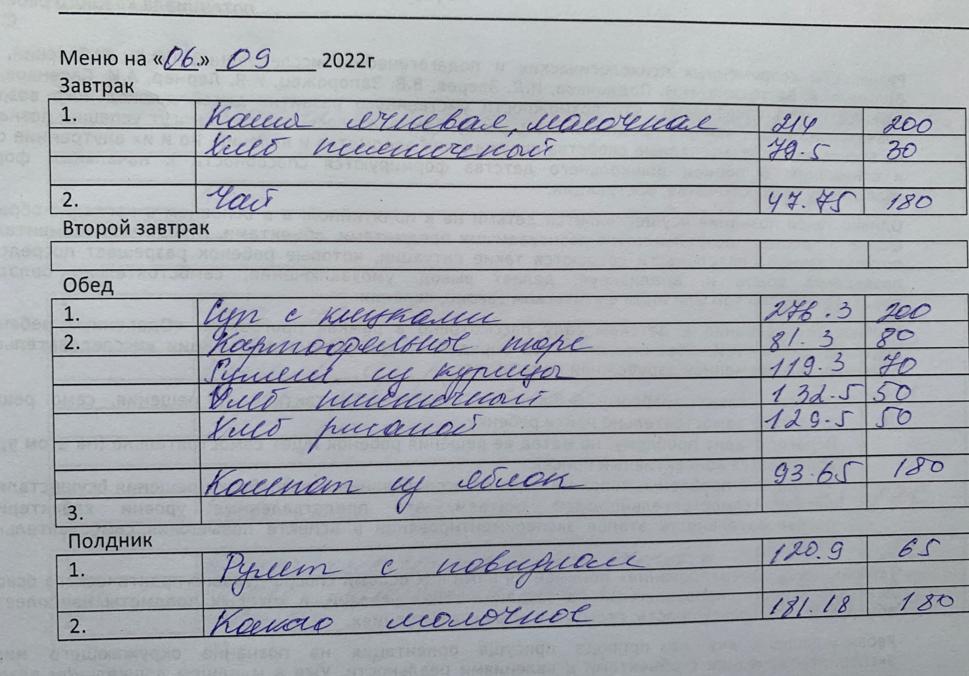 Меню на «06.» 09 2022г
Завтрак
1. Каша ячневая, молочная 214 200
Хлеб пшеничный 79.5 30
2. Чай 47.75 180
Второй завтрак
Обед
1. Суп с клецками 276.3 200
2. Картофельное пюре 81.3 80
Рулет из курицы 119.3 70
Хлеб пшеничный 132.5 50
Хлеб ржаной 129.5 50
Компот из яблок 93.65 180
3.
Полдник
1. Рулет с повидлом 120.9 65
2. Какао молочное 181.18 180